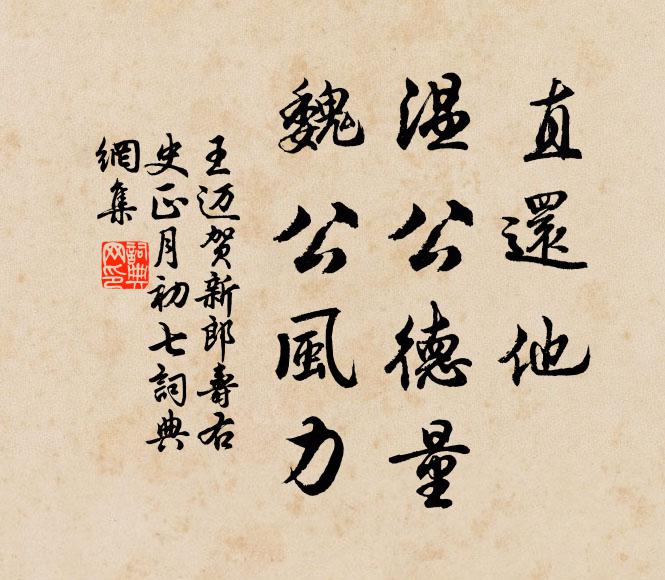 直還他
温公德量
魏公風力
王迈賀新郎壽右
史正月初七詞典
網集
詞典網印